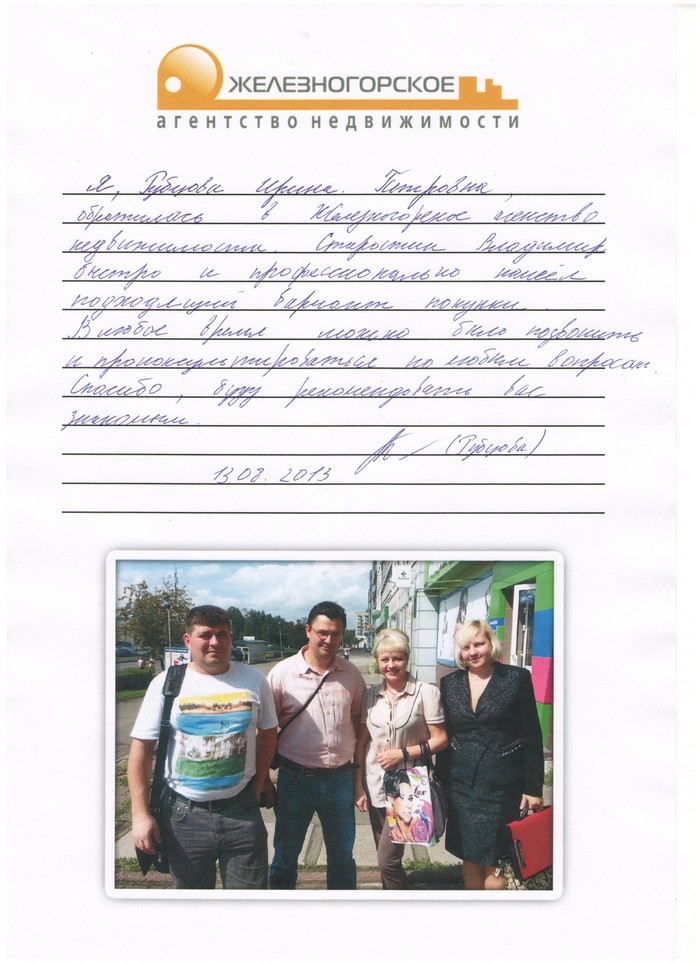 ЖЕЛЕЗНОГОРСКОЕ
агентство недвижимости
Я, Губцова Ирина. Петровна,
обратилась в Железногорское агенство
недвижимости. Старостин Владимир
быстро и профессионально нашёл
подходящий вариант покупки.
В любое время можно было позвонить
и проконсультироваться по любым вопросам.
Спасибо, буду рекомендовать вас
знакомым.
(Губцова)
13.08.2013